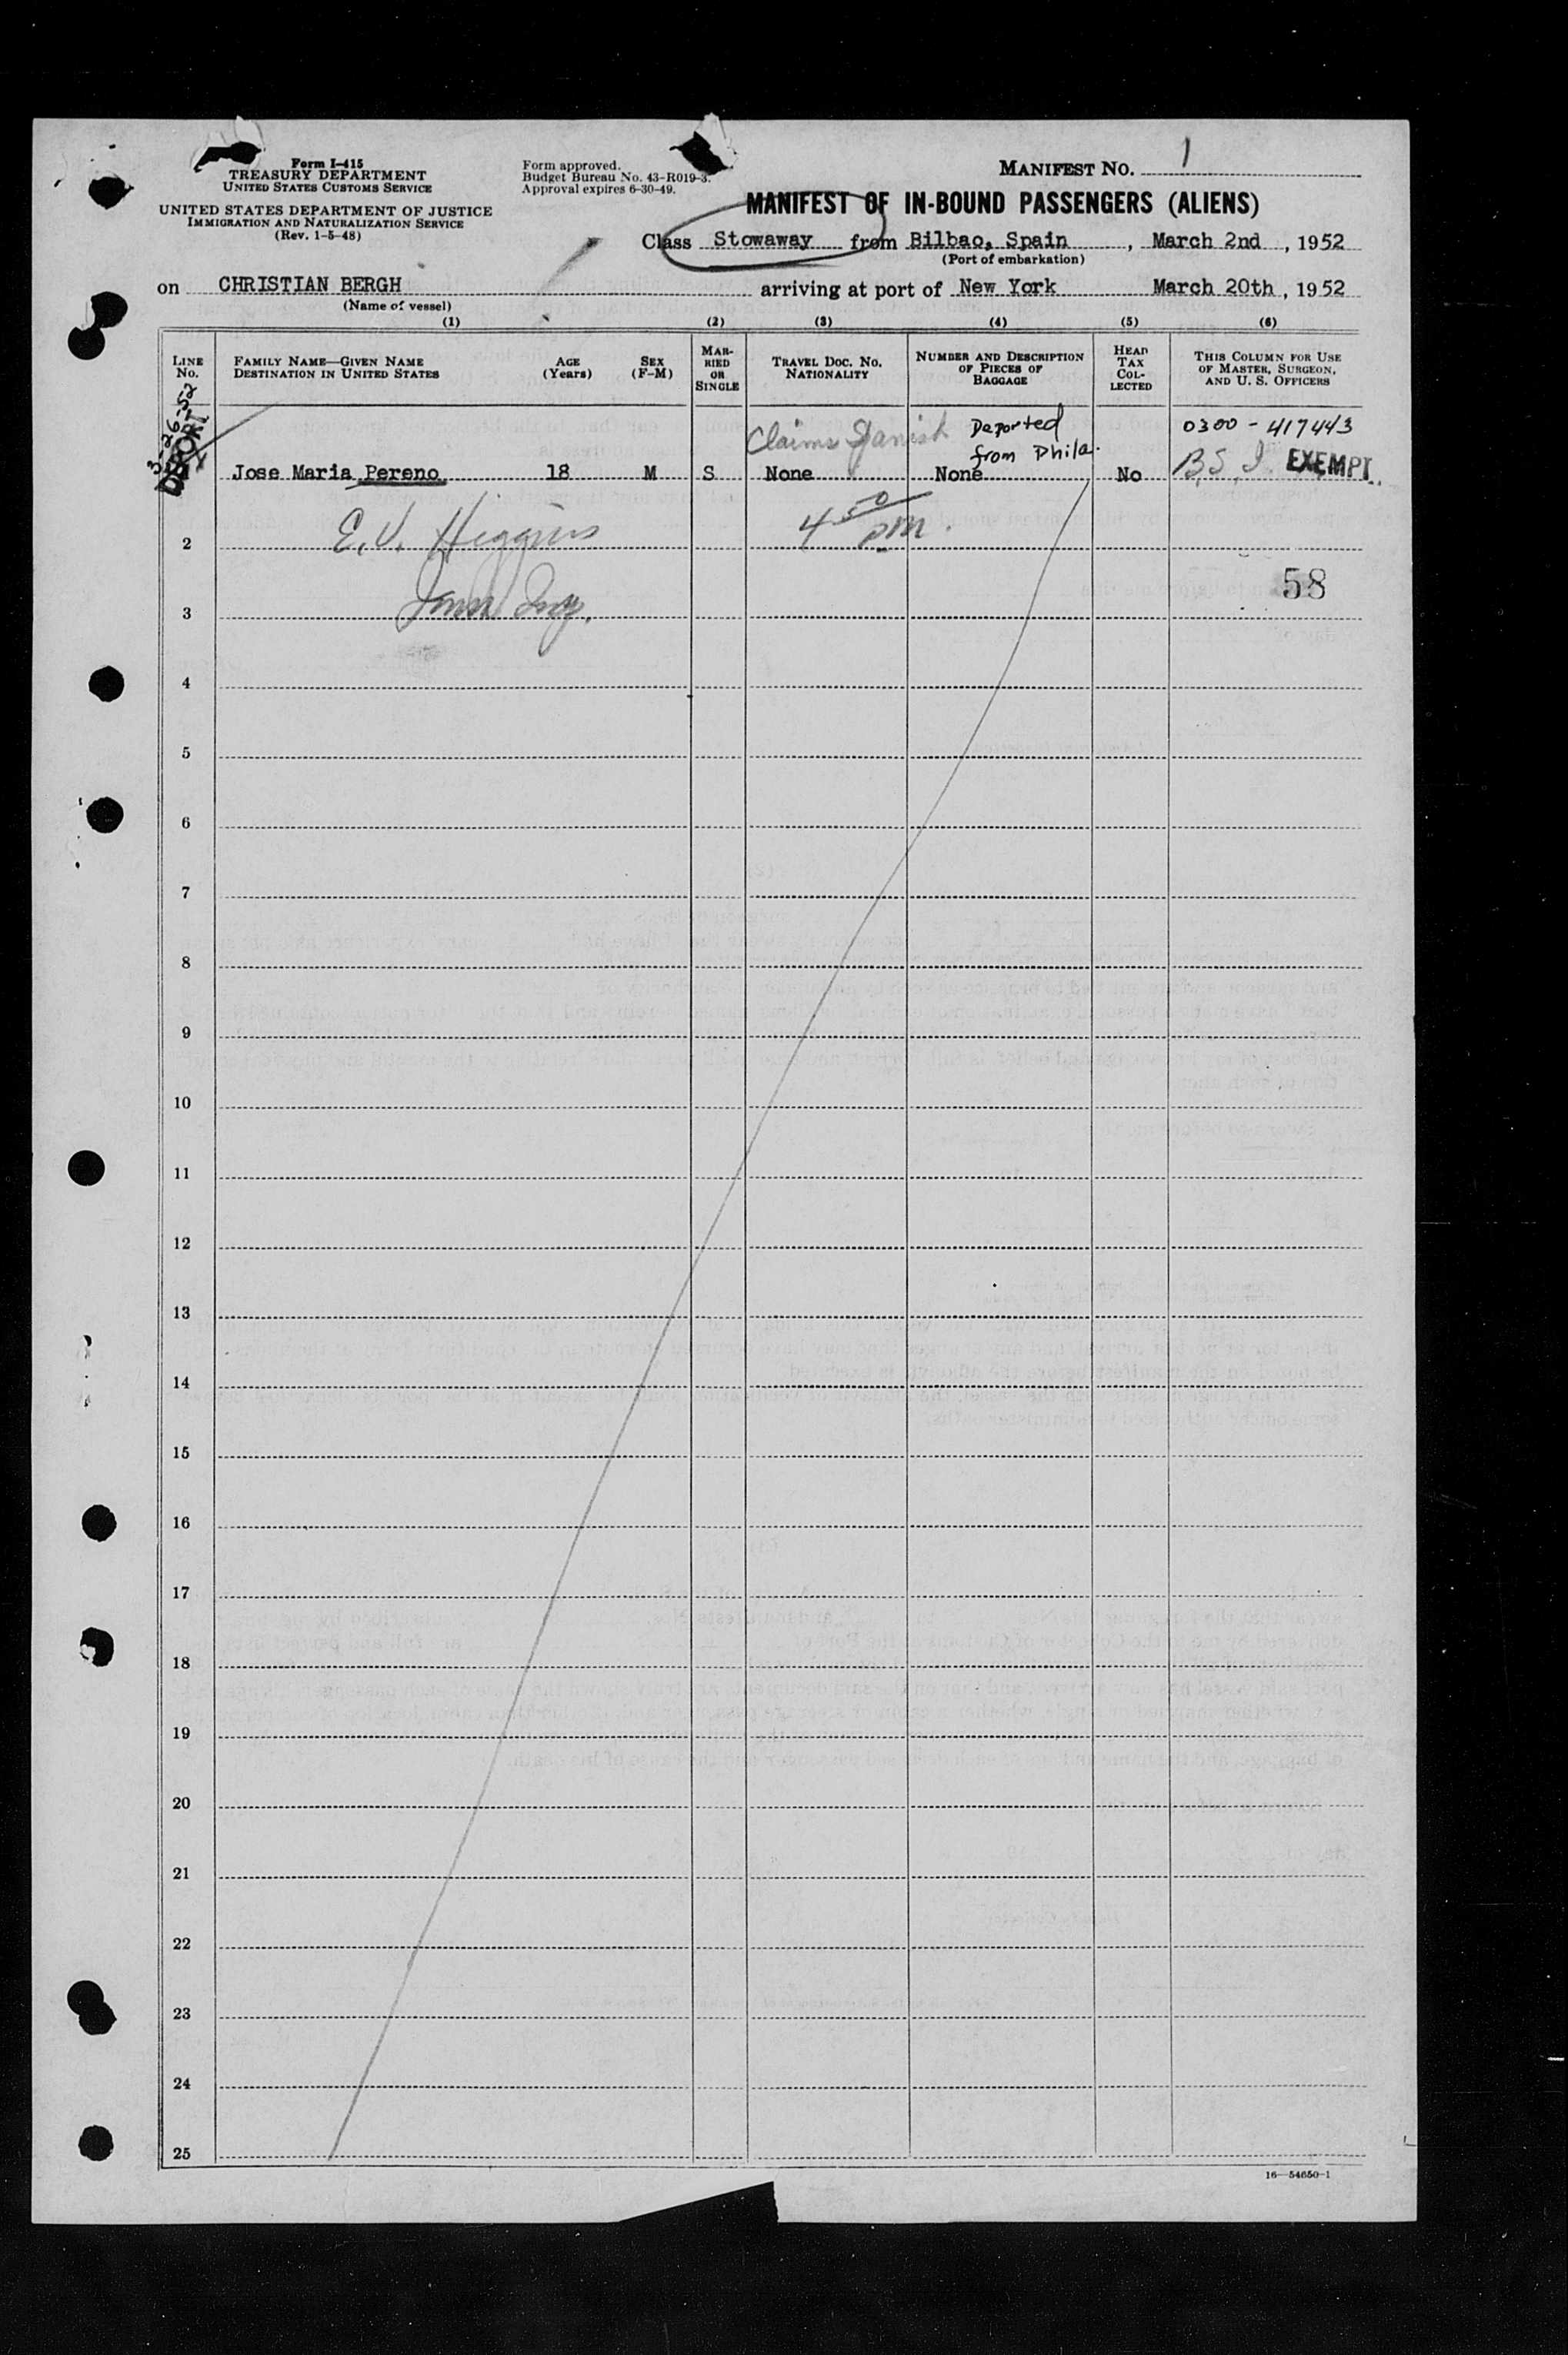 Form I-415
TREASURY DEPARTMENT
UNITED STATES CUSTOMS SERVICE
UNITED STATES DEPARTMENT OF JUSTICE
IMMIGRATION AND NATURALIZATION SERVICE
(Rev. 1-5-48)
Form approved.
Budget Bureau No. 43-R019-3.
Approval expires 6-30-49.
MANIFEST NO. 1
MANIFEST OF IN-BOUND PASSENGERS (ALIENS)
Class Stowaway from Bilbao, Spain, March 2nd, 1952
(Port of embarkation)
on CHRISTIAN BERGH arriving at port of New York March 20th, 1952
(Name of vessel)
(1) (2) (3) (4) (5) (6)
LINE NO.
FAMILY NAME—GIVEN NAME
DESTINATION IN UNITED STATES
AGE (Years)
SEX (F-M)
MARRIED OR SINGLE
TRAVEL DOC. NO.
NATIONALITY
NUMBER AND DESCRIPTION OF PIECES OF BAGGAGE
HEAD TAX COLLECTED
THIS COLUMN FOR USE OF MASTER, SURGEON, AND U. S. OFFICERS
3-26-52
DEPORT
Claims Spanish Deported from Phila. 0300-417443
Jose Maria Pereno 18 M S None None No B.S.I. EXEMPT
E.V. Higgins 4 50 pm.
2
58
Insp.
3
4
5
6
7
8
9
10
11
12
13
14
15
16
17
18
19
20
21
22
23
24
25
16—54650-1